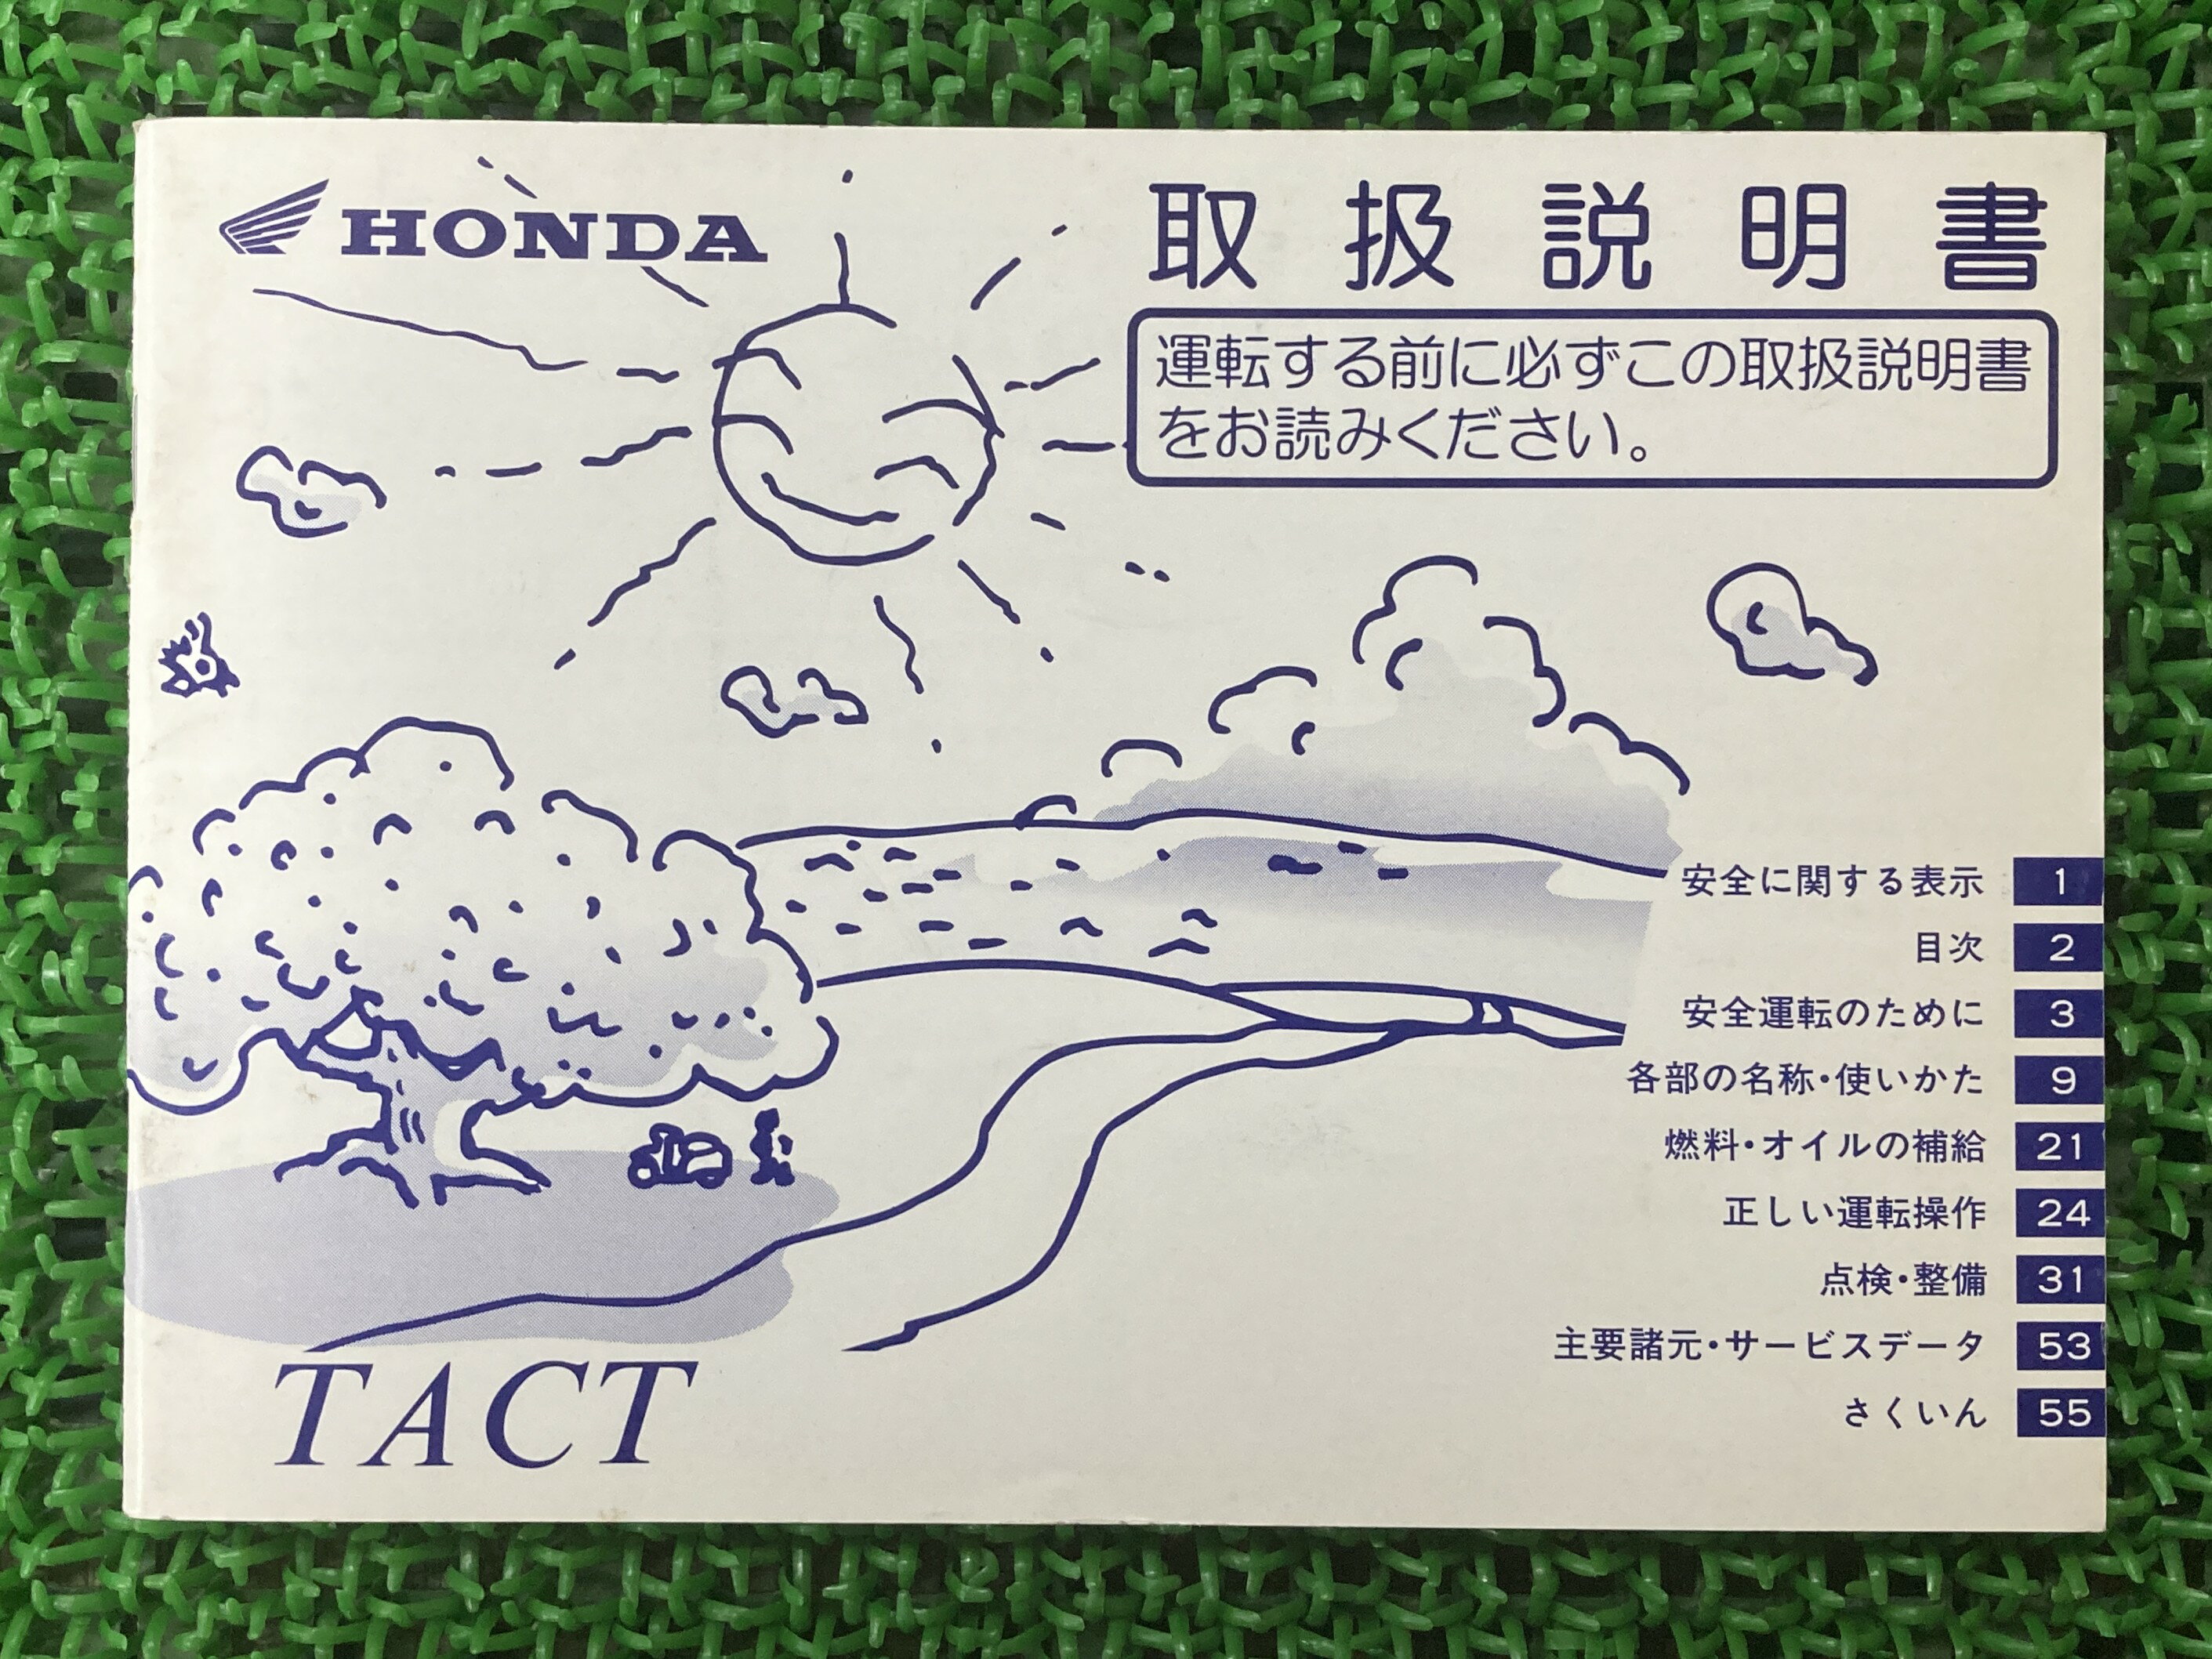 HONDA
取扱説明書
運転する前に必ずこの取扱説明書
をお読みください。
安全に関する表示 1
目次 2
安全運転のために 3
各部の名称・使いかた 9
燃料・オイルの補給 21
正しい運転操作 24
点検・整備 31
主要諸元・サービスデータ 53
さくいん 55
TACT